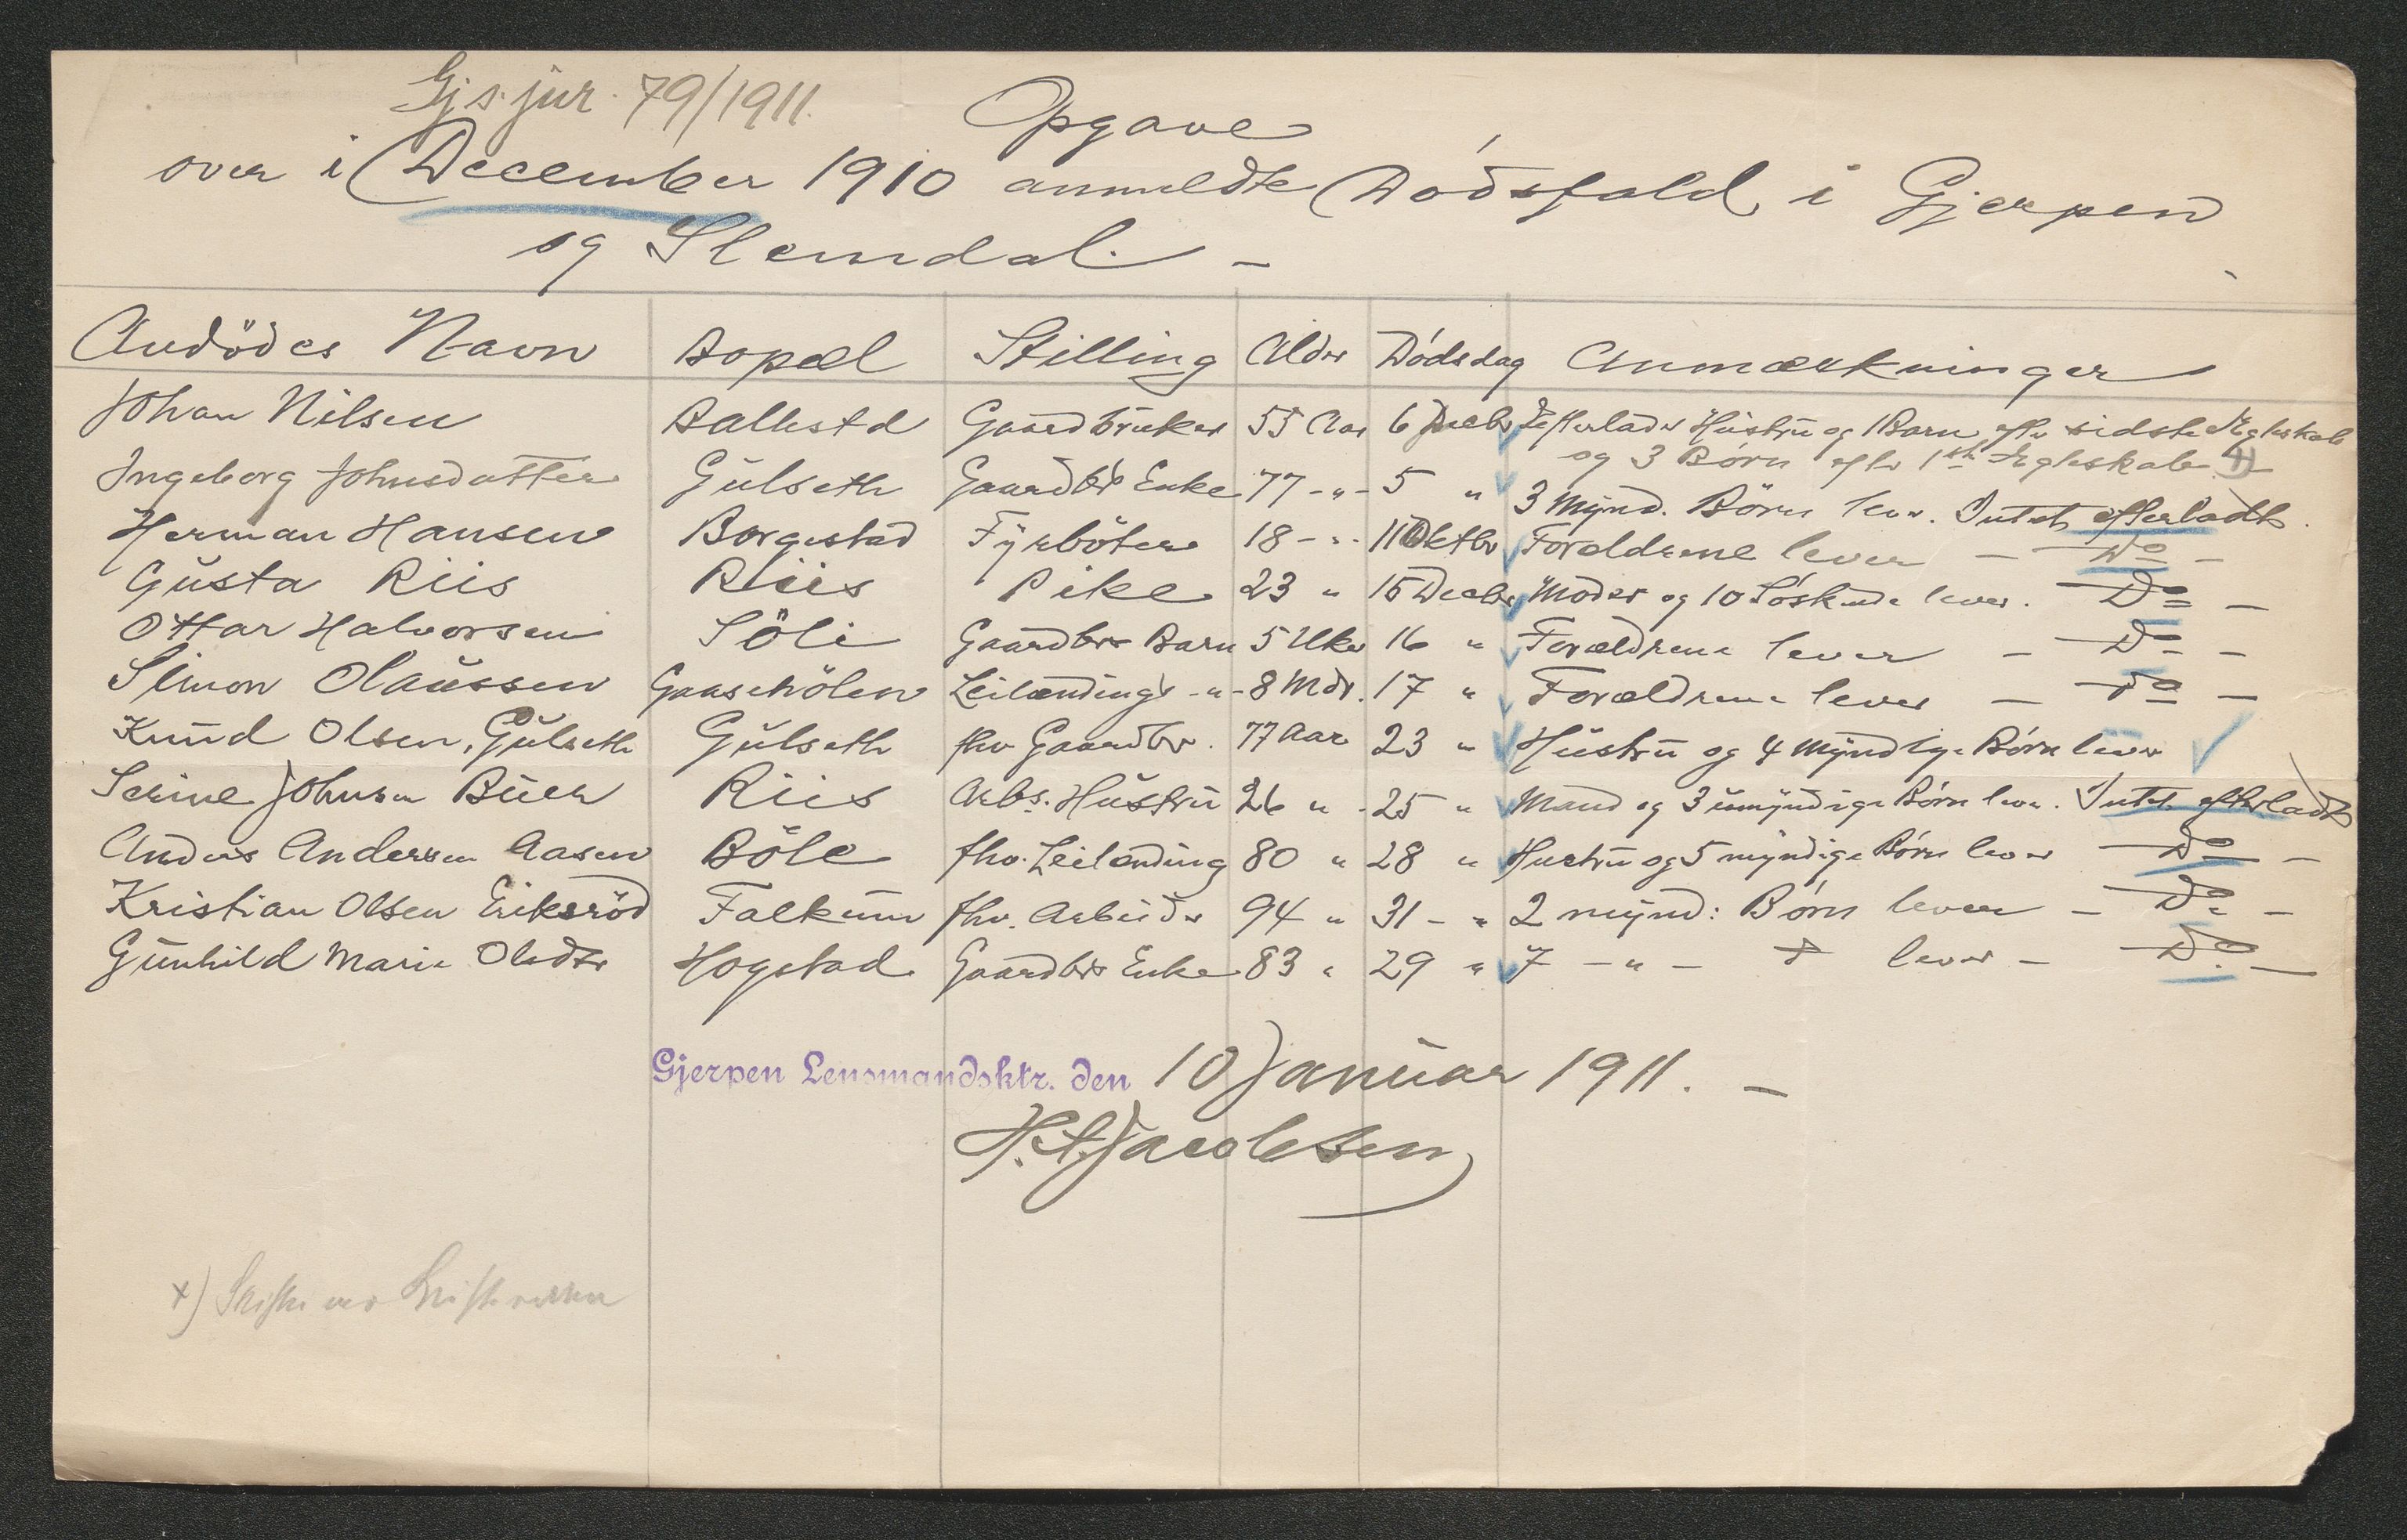 Gj. s. jur. 79/1911.
Opgave
over i December 1910 anmeldte Dødsfald i Gjerpen
og Slemdal. -
Avdødes Navn Bopæl Stilling Alder Dødsdag Anmærkninger
Johan Nilsen Ballestad Gaardbruker 55 Aar 6 Decbr Efterlader Hustru og 1 Barn efter sidste Ægteskab
og 3 Børn efter 1ste Ægteskab x)
Ingeborg Johnsdatter Gulseth Gaardbrs Enke 77 -"- 5 " 3 Mynd. Børn lever. Intet efterladt.
Herman Hansen Borgestad Fyrbøter 18 -"- 11 Oktbr Forældrene lever - Do -
Gusta Riis Riis Pike 23 " 15 Decbr Moder og 10 Søskende lever. Do -
Ottar Halvorsen Søli Gaardbrs Barn 5 Uker 16 " Forældrene lever - Do -
Simon Olaussen Gaaseholen Leilændings -"- 8 Mdr. 17 " Forældrene lever - Do -
Knud Olsen, Gulseth Gulseth fhv Gaardbr. 77 Aar 23 " Hustru og 4 Myndige Børn lever
Serine Johnsen Buer Riis Arbs. Hustru 26 " 25 " Mand og 3 umyndige Børn lever. Intet efterladt
Anders Andersen Aasen Bøle fhv. Leilænding 80 " 28 " Hustru og 5 myndige Børn lever Do -
Kristian Olsen Eriksrød Falkum fhv. Arbeider 94 " 31 - " 2 mynd: Børn lever - Do -
Gunhild Marie Olsdtr Hogstad Gaardbrs Enke 83 " 29 " 7 -"- lever - Do -
Gjerpen Lensmandsktr. den 10 Januar 1911. -
H. A. Jacobsen
x)